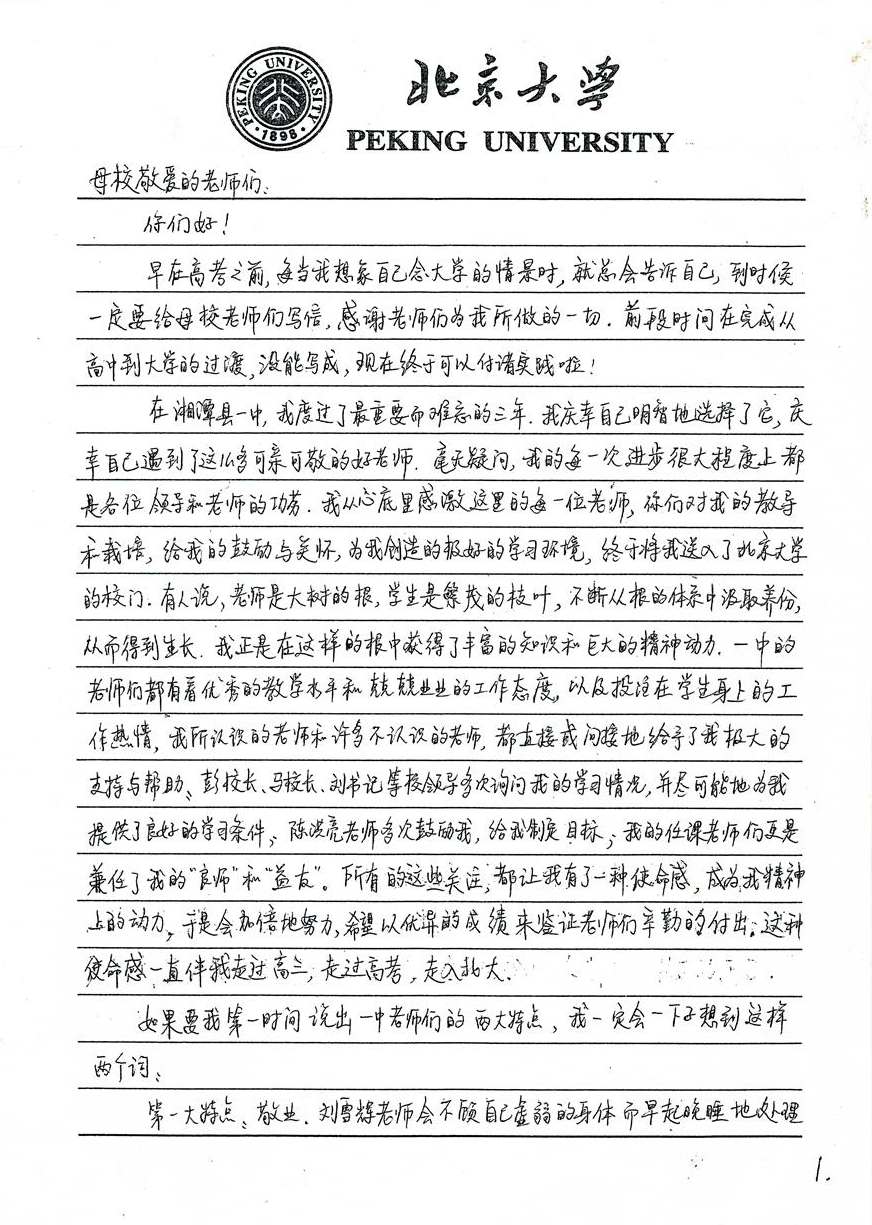 PEKING UNIVERSITY
1898
北京大学
PEKING UNIVERSITY
母校敬爱的老师们:
你们好!
早在高考之前,每当我想象自己念大学的情景时,就总会告诉自己,到时候
一定要给母校老师们写信,感谢老师们为我所做的一切.前段时间在完成从
高中到大学的过渡,没能写成,现在终于可以付诸实践啦!
在湘潭县一中,我度过了最重要而难忘的三年.我庆幸自己明智地选择了它,庆
幸自己遇到了这么多可亲可敬的好老师.毫无疑问,我的每一次进步很大程度上都
是各位领导和老师的功劳.我从心底里感激这里的每一位老师,你们对我的教导
和栽培,给我的鼓励与关怀,为我创造的极好的学习环境,终于将我送入了北京大学
的校门.有人说,老师是大树的根,学生是繁茂的枝叶,不断从根的体系中汲取养份,
从而得到生长.我正是在这样的根中获得了丰富的知识和巨大的精神动力.一中的
老师们都有着优秀的教学水平和兢兢业业的工作态度,以及投注在学生身上的工
作热情,我所认识的老师和许多不认识的老师,都直接或间接地给予了我极大的
支持与帮助、彭校长、马校长、刘书记等校领导多次询问我的学习情况,并尽可能地为我
提供了良好的学习条件;陈洪亮老师多次鼓励我,给我制定目标;我的任课老师们更是
兼任了我的"良师"和"益友"。所有的这些关注,都让我有了一种使命感,成为我精神
上的动力,于是会加倍地努力,希望以优异的成绩来鉴证老师们辛勤的付出。这种
使命感一直伴我走过高三,走过高考,走入北大.
如果要我第一时间说出一中老师们的两大特点,我一定会一下子想到这样
两个词:
第一大特点、敬业.刘雪辉老师会不顾自己虚弱的身体而早起晚睡地处理
1.